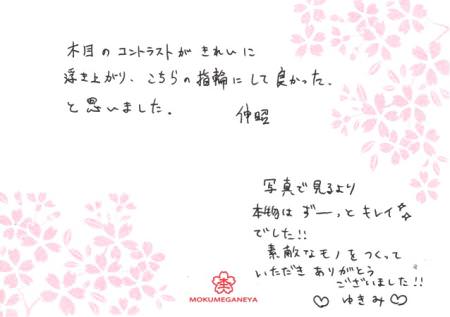 木目のコントラストがきれいに
浮き上がり、こちらの指輪にして良かった、
と思いました。 伸昭
写真で見るより
本物はずーーっとキレイ☆☆
でした!!
素敵なモノをつくって
いただきありがとう
ございました!!
♡ ゆきみ ♡
MOKUMEGANEYA